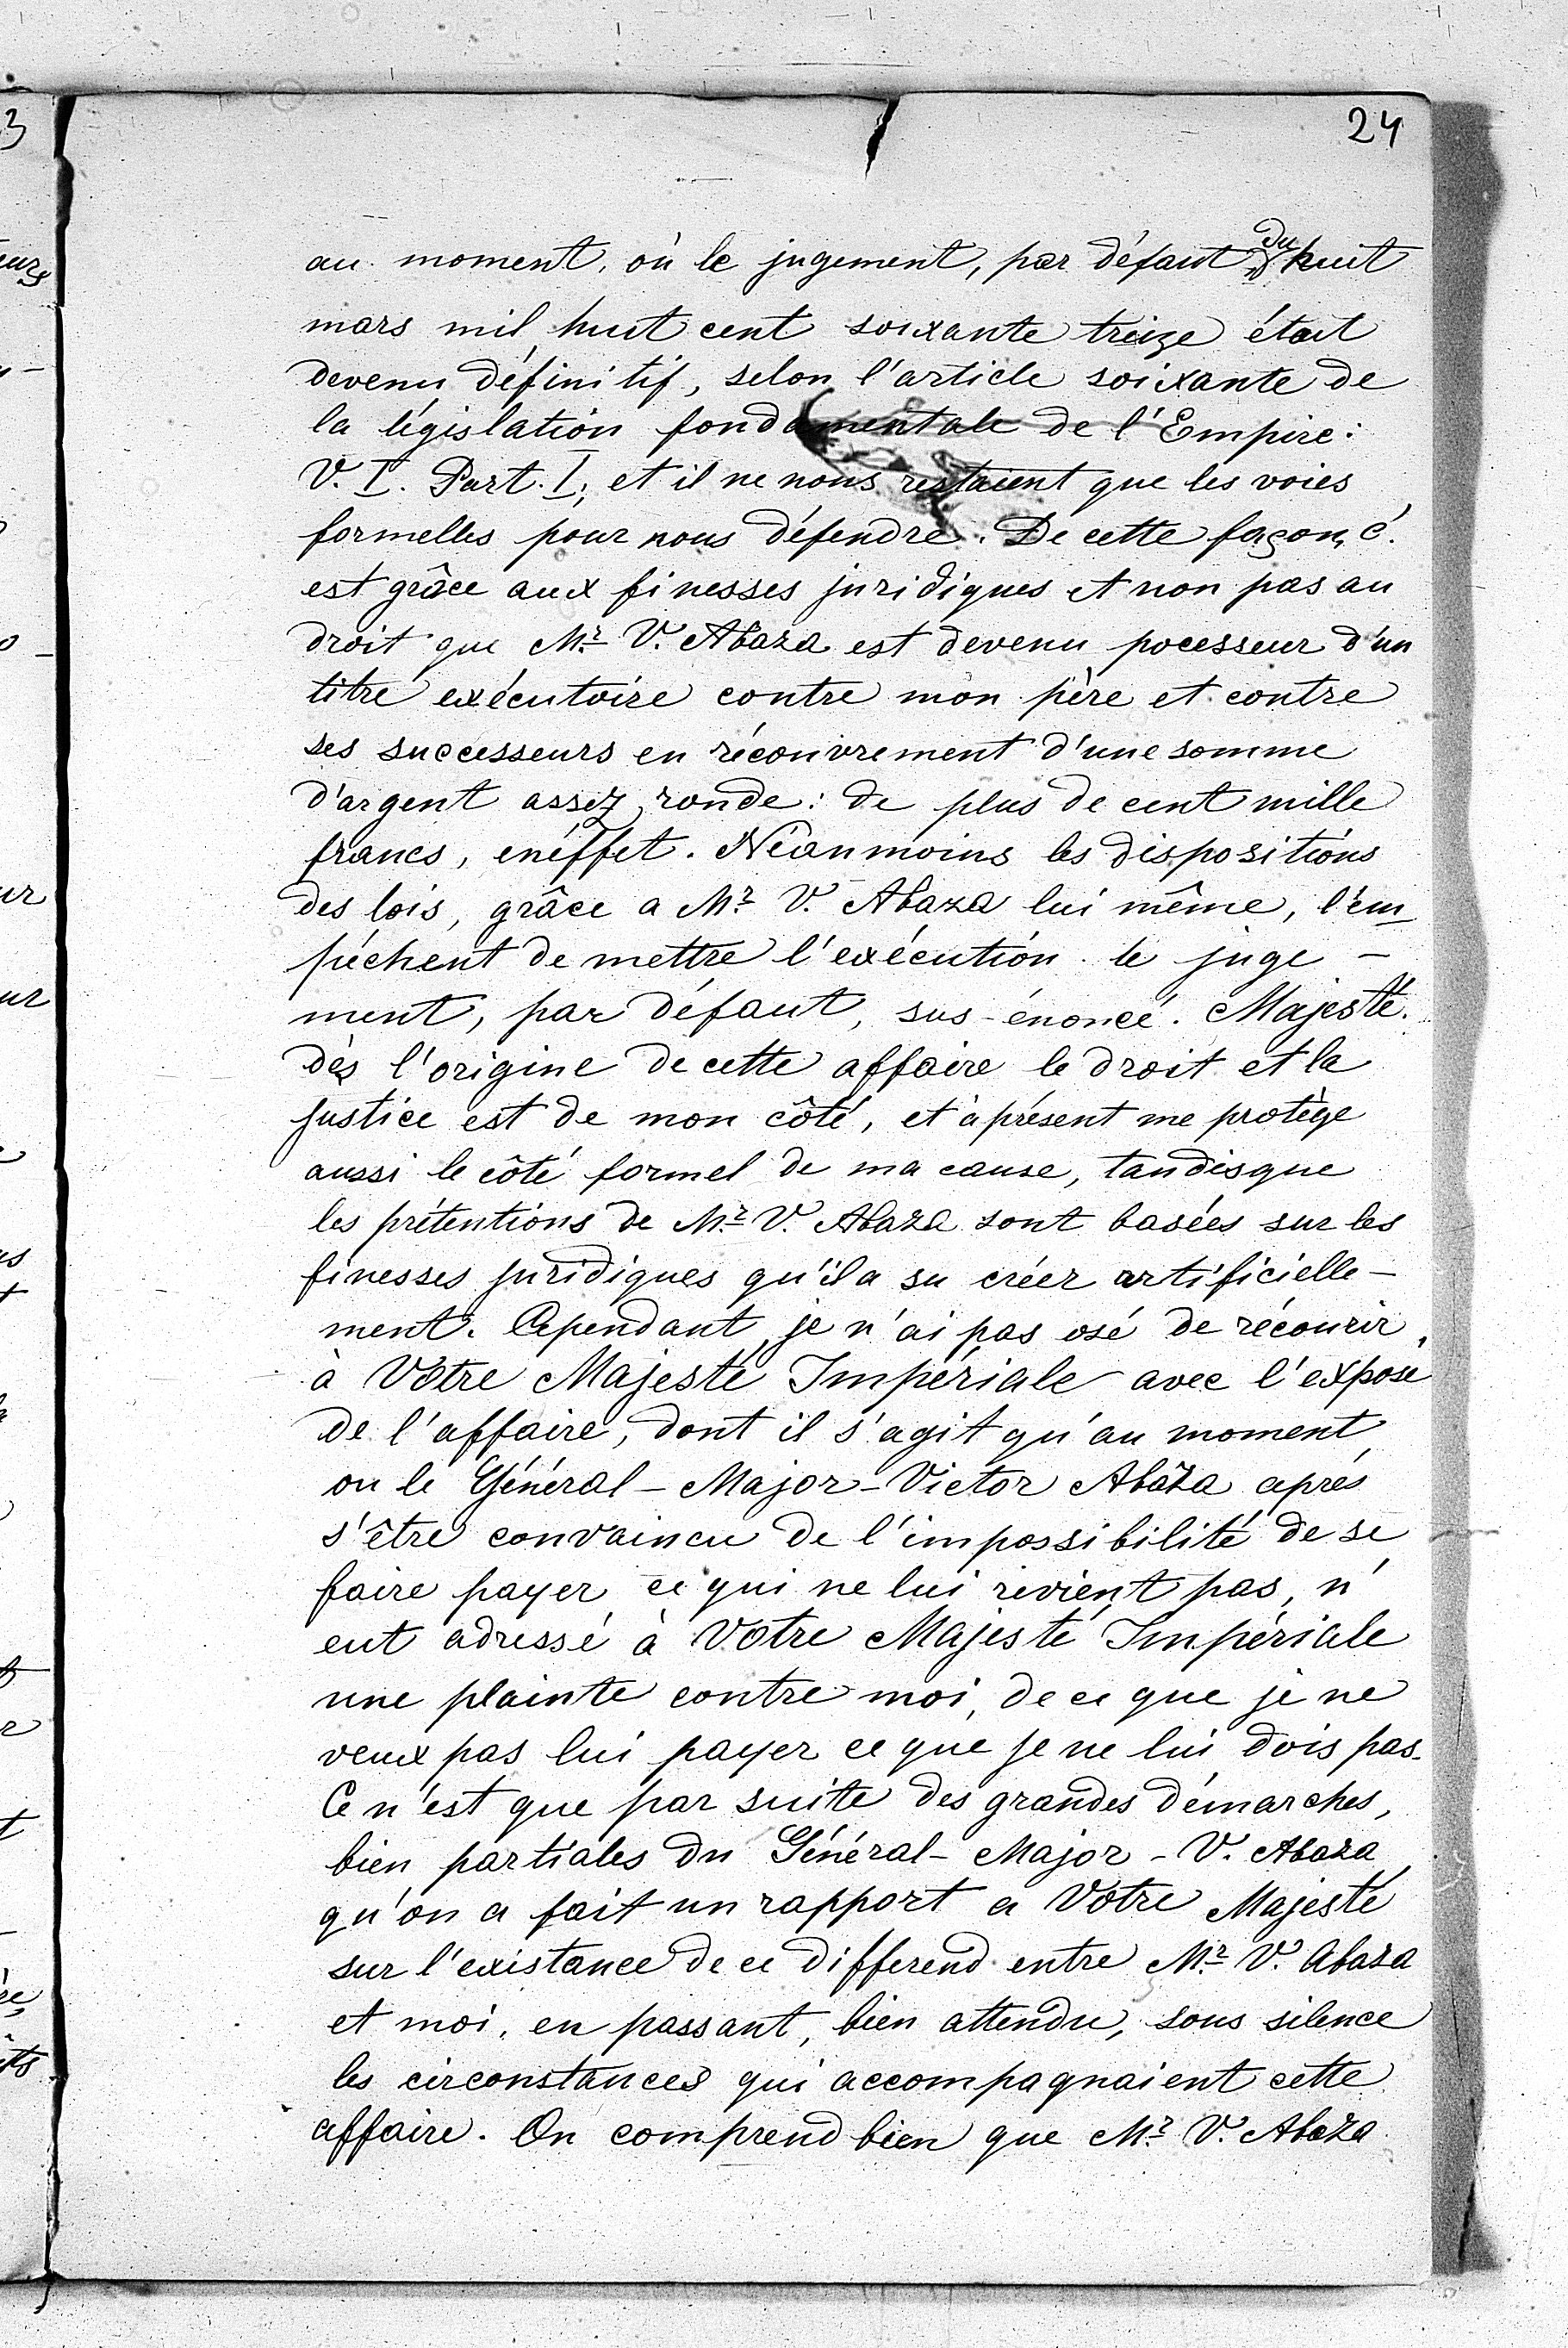 24
au moment, où le jugement, par défaut du huit
mars mil huit cent soixante treize était
devenu définitif, selon l'article soixante de
la législation fondamentale de l'Empire:
V. I. Part. I; et il ne nous restaient que les voies
formelles pour nous défendre. De cette façon, c'
est grâce aux finesses juridiques et non pas au
droit que Mr V. Abaza est devenu pocesseur d'un
titre exécutoire contre mon père et contre
ses successeurs en récouvrement d'une somme
d'argent assez ronde: de plus de cent mille
francs, en éffet. Néanmoins les dispositions
des lois, grâce a Mr V. Abaza lui même, l'em
pêchent de mettre l'exécution le juge -
ment, par défaut, sus-énoncé. Majesté.
dès l'origine de cette affaire le droit et la
justice est de mon côté, et à présent me protège
aussi le côté formel de ma cause, tandisque
les prétentions de Mr V. Abaza sont basées sur les
finesses juridiques qu'il a su créer artificielle-
ment. Cependant, je n'ai pas osé de récourir
à Votre Majesté Impériale avec l'exposé
de l'affaire, dont il s'agit qu'au moment
ou le Général - Major - Victor Abaza après
s'être convaincu de l'impossibilité de se
faire payer ce qui ne lui revient pas, n'
eut adressé à Votre Majesté Impériale
une plainte contre moi, de ce que je ne
veux pas lui payer ce que je ne lui dois pas.
Ce n'est que par suite des grandes démarches,
bien partiales du Général - Major - V. Abaza
qu'on a fait un rapport a Votre Majesté
sur l'existance de ce differend entre Mr V. Abaza
et moi, en passant, bien attendu, sous silence
les circonstances qui accompagnaient cette
affaire. On comprend bien que Mr V. Abaza